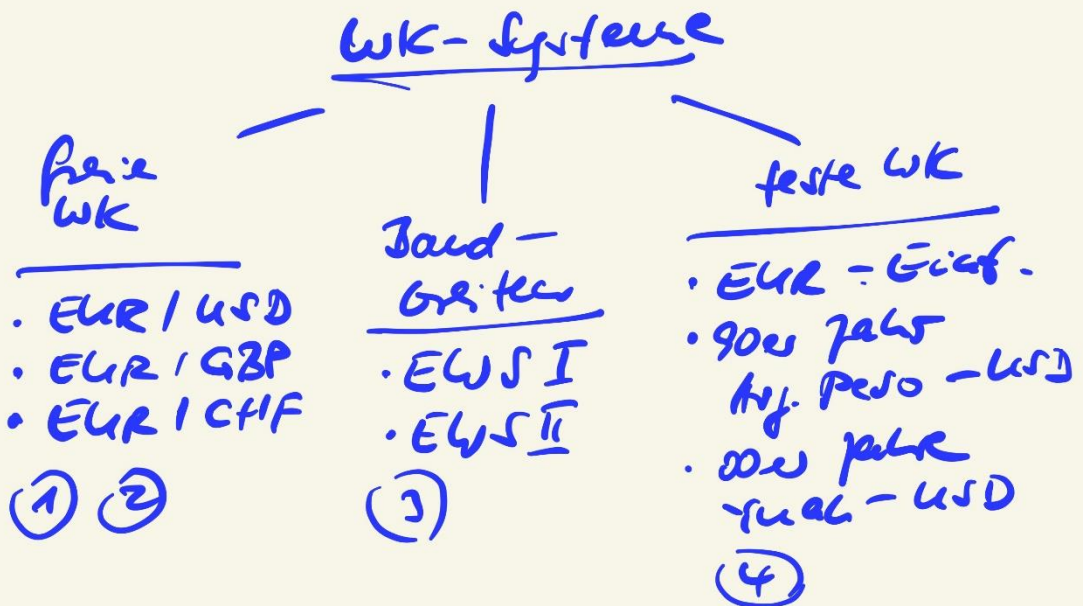 WK-Systeme
freie
WK
· EUR / USD
· EUR / GBP
· EUR / CHF
① ②
Band-
breiten
· EWS I
· EWS II
③
feste WK
· EUR - Einf.
· 90er Jahre
Arg. Peso - USD
· 00er Jahre
Yuan - USD
④